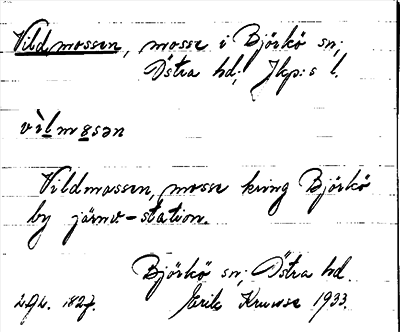 Vildmossen, mosse i Björkö sn;
Östra hd; Jkp:s l.
vìlmosən
Vildmossen, mosse kring Björkö
by järnv-station.
Björkö sn; Östra hd
Erik Kruuse 1933.